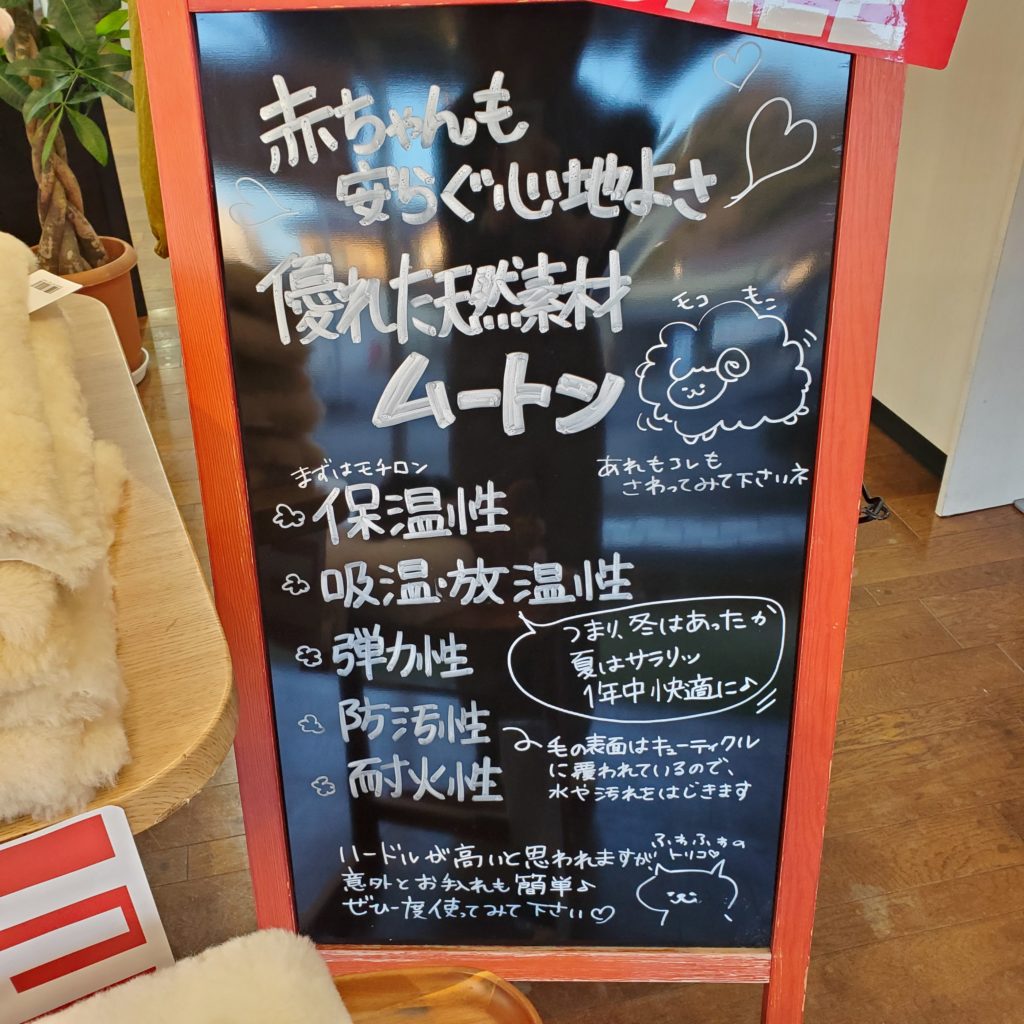 赤ちゃんも
安らぐ心地よさ
優れた天然素材
ムートン
モコ もこ
あれもコレも
さわってみて下さいネ
まずはモチロン
保温性
吸温・放温性
弾力性
つまり、冬はあったか
夏はサラリッ
1年中快適に♪
防汚性
耐火性
毛の表面はキューティクル
に覆われているので、
水や汚れをはじきます
ハードルが高いと思われますが、
意外とお手入れも簡単♪
ぜひ一度使ってみて下さい♡
ふわふわの
トリコ♡